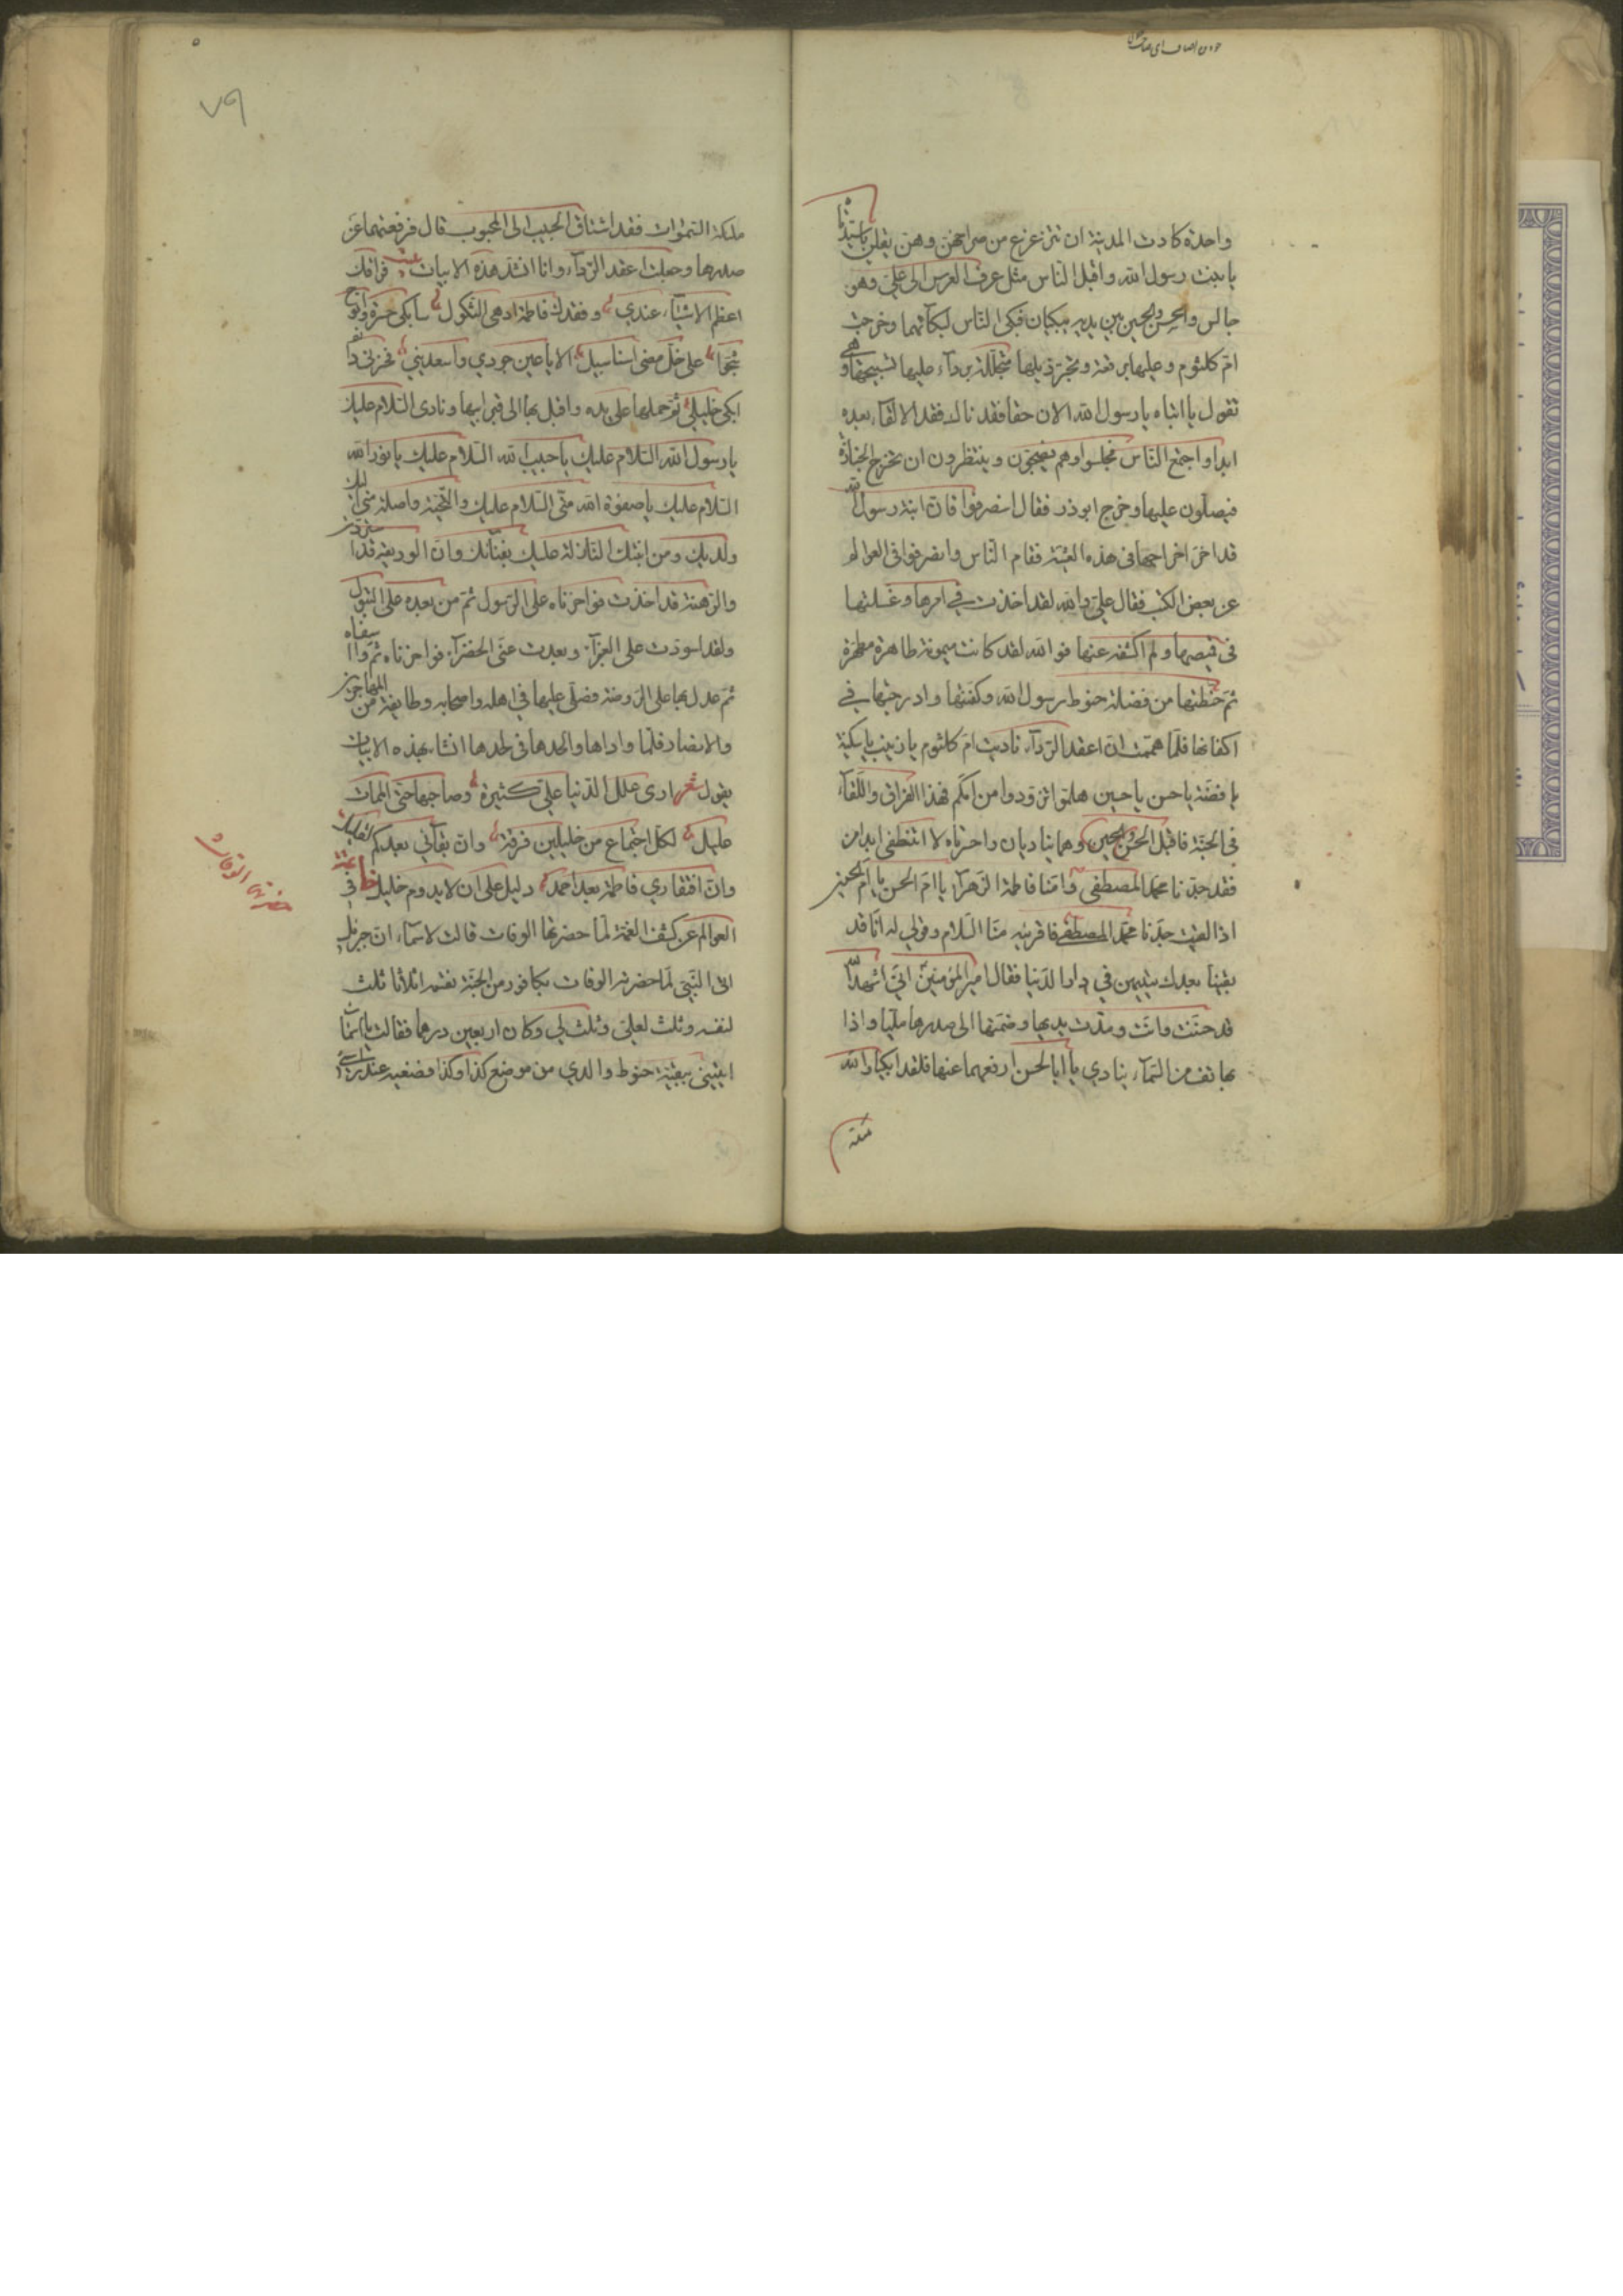 واحدة كادت المدينة ان تتزعزع من صراخهن وهن يقلن يا سيدتاه
يا بنت رسول الله واقبل الناس مثل عرف الفرس الى علي وهو
جالس والحسن والحسين بين يديه يبكيان فبكى الناس لبكائهما وخرجت
ام كلثوم وعليها برقعة وتجر ذيلها متجللة برداء عليها تسبيجها وهي
تقول يا ابتاه يا رسول الله الان حقا فقدناك فقدا لا لقاء بعده
ابدا واجتمع الناس فجلسوا وهم يضجون وينتظرون ان تخرج الجنازة
فيصلون عليها وخرج ابوذر فقال انصرفوا فان ابنة رسول الله
قد اخر اخراجها في هذه العشية فقام الناس وانصرفوا في العوالم
عن بعض الكتب فقال علي والله لقد اخذت في امرها وغسلتها
في قميصها ولم اكشفه عنها فوالله لقد كانت ميمونة طاهرة مطهرة
ثم حنطتها من فضلة حنوط رسول الله وكفنتها وادرجتها في
اكفانها فلما هممت ان اعقد الرداء ناديت ام كلثوم يا زينب يا سكينة
يا فضة يا حسن يا حسين هلموا تزودوا من امكم فهذا الفراق واللقاء
في الجنة فاقبل الحسن والحسين وهما يناديان واحزناه لا تنطفي ابدا من
فقد جدنا محمد المصطفى وامنا فاطمة الزهراء يا ام الحسن يا ام الحسين
اذا لقيت جدنا محمد المصطفى فاقرئيه منا السلام وقولي له انا قد
بقينا بعدك يتيمين في دار الدنيا فقال امير المؤمنين اني اشهد الله
قد حنت وانت ومدت يديها وضمتهما الى صدرها مليا واذا
بهاتف من السماء ينادي يا ابا الحسن ارفعهما عنها فلقد ابكيا والله
ملئكة
٧٩
ملئكة السموات فقد اشتاق الحبيب الى المحبوب قال فرفعتهما عن
صدرها وجعلت اعقد الرداء وانا انشد هذه الابيات فراقك
اعظم الاشياء عندي وفقدك فاطمة ادهى الثكول سابكي حسرة وانوح
شجوا على خل مضى اسنا سبيل الا يا عين جودي واسعديني فحزني دائم
ابكي خليلي ثم حملها على يده واقبل بها الى قبر ابيها ونادى السلام عليك
يا رسول الله السلام عليك يا حبيب الله السلام عليك يا نور الله
السلام عليك يا صفوة الله مني السلام عليك والتحية واصلة مني اليك
ولديك ومن ابنتك النازلة عليك بفنائك وان الوديعة قد استردت
والرهينة قد اخذت فواحزناه على الرسول ثم من بعده على البتول
ولقد اسودت على الغبراء وبعدت عني الخضراء فواحزناه ثم وا اسفاه
ثم عدل بها على الروضة فصلى عليها في اهله واصحابه وطايفة من المهاجرين
والانصار فلما واراها والحدها في لحدها انشا بهذه الابيات
يقول شعر ارى علل الدنيا علي كثيرة وصاحبها حتى الممات
عليل لكل اجتماع من خليلين فرقة وان بقائي بعدكم لقليل
وان افتقادي فاطمة بعد احمد دليل على ان لا يدوم خليل في
العوالم عن كشف الغمة لما حضرتها الوفات قالت لاسماء ان جبرئيل
اتى النبي لما حضرته الوفات بكافور من الجنة فقسمه اثلاثا ثلث
لنفسه وثلث لعلي وثلث لي وكان اربعين درهما فقالت يا اسماء
ايتيني ببقية حنوط والدي من موضع كذا وكذا فضعيه عند راسي
حضرتها الوفات